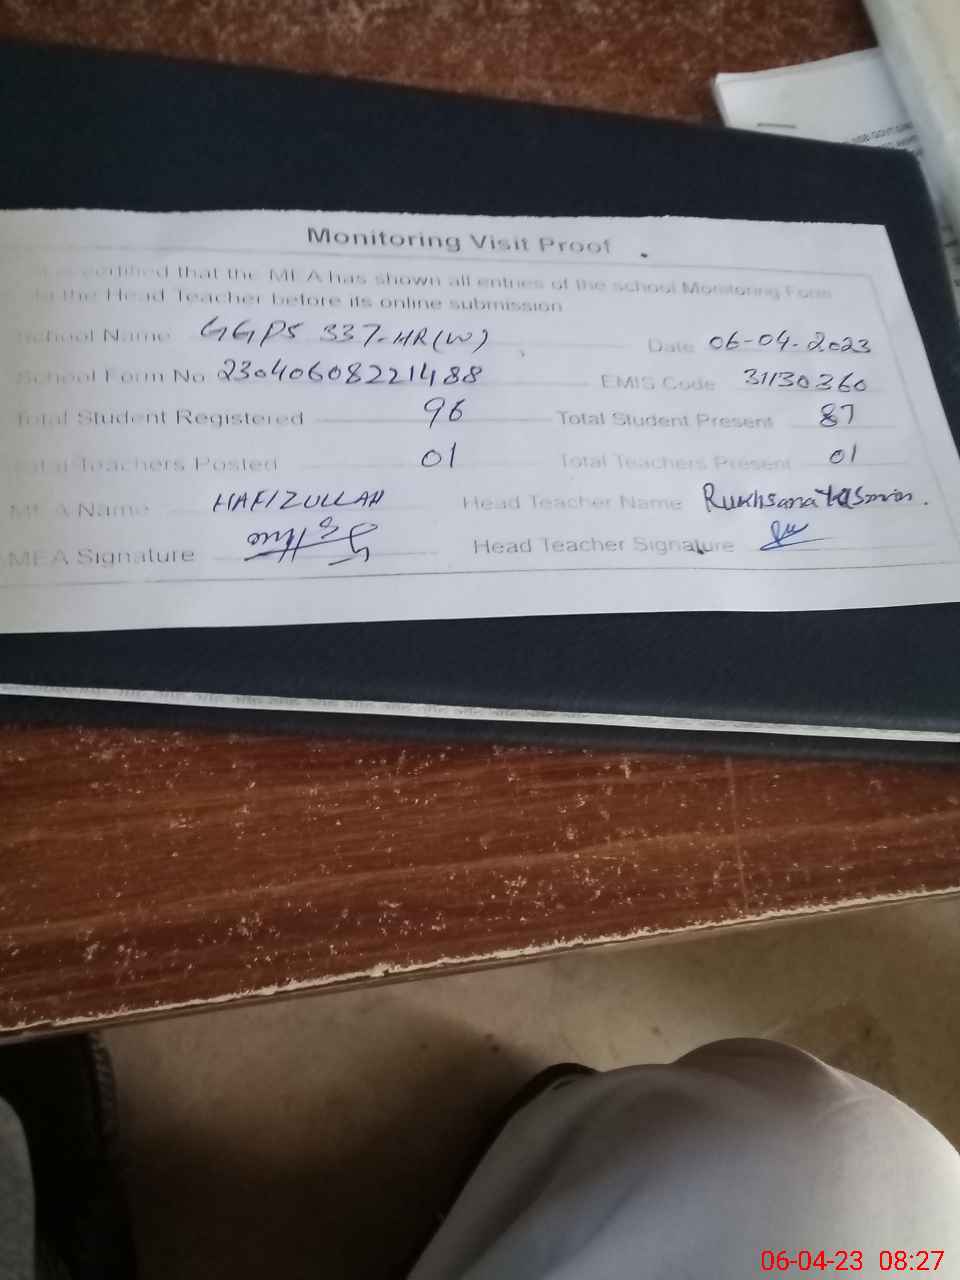 Monitoring Visit Proof
certified that the MEA has shown all entries of the school Monitoring Form
to the Head Teacher before its online submission
School Name GGPS 337-HR(W) Date 06-04-2023
School Form No 23040608221488 EMIS Code 31130360
Total Student Registered 96 Total Student Present 87
Total Teachers Posted 01 Total Teachers Present 01
MEA Name HAFIZULLAH Head Teacher Name Rukhsana Yasmin.
MEA Signature Head Teacher Signature
06-04-23 08:27